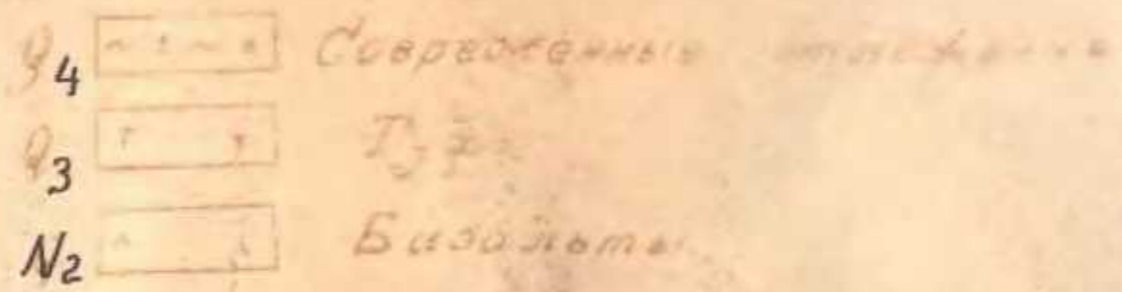 Q4 Современные отложения
Q3 Туфы
N2 Базальты